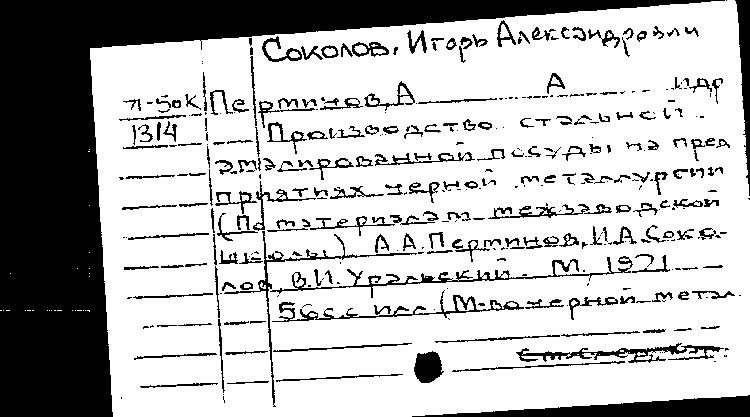 Соколов, Игорь Александрович
71-50К Перминов, А А идр
1314 Производство стальной
эмалированной посуды на пред
приятиях черной металлургии
(По материалам межзаводской
школы) А.А.Перминов, И.А.Соко-
лов, В.И. Уральский. М., 1971
56 с. с илл (М-во черной метал.
См. след. к.